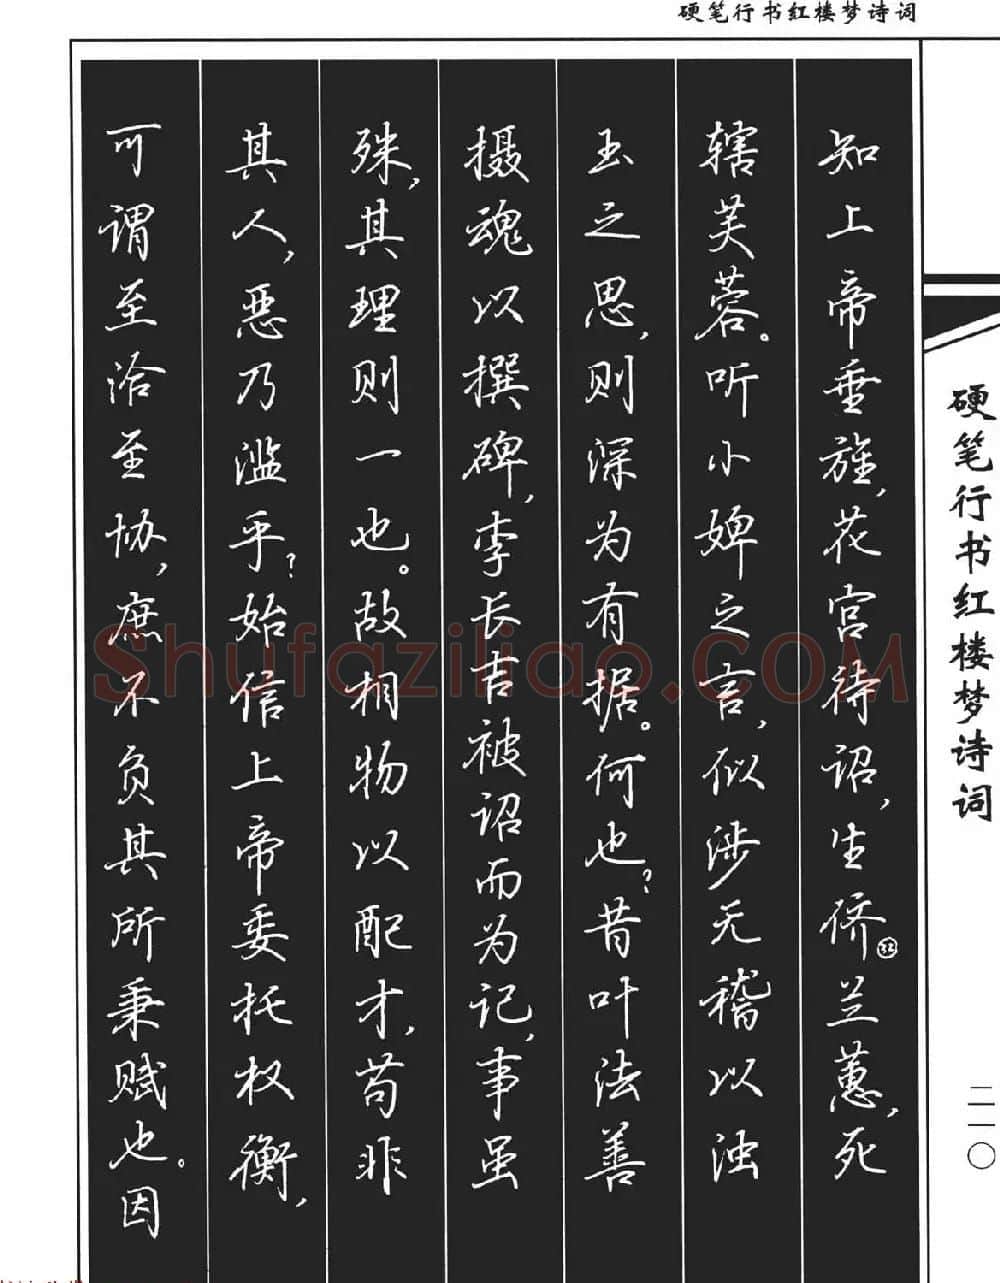 硬笔行书红楼梦诗词
知上帝垂旌，花宫待诏，生侪㉜兰蕙，死
辖芙蓉。听小婢之言，似涉无稽以浊
玉之思，则深为有据。何也？昔叶法善
摄魂以撰碑，李长吉被诏而为记，事虽
殊，其理则一也。故相物以配才，苟非
其人，恶乃滥乎？始信上帝委托权衡，
可谓至洽至协，庶不负其所秉赋也。因
硬笔行书红楼梦诗词
二一〇
Shufaziliao.COM